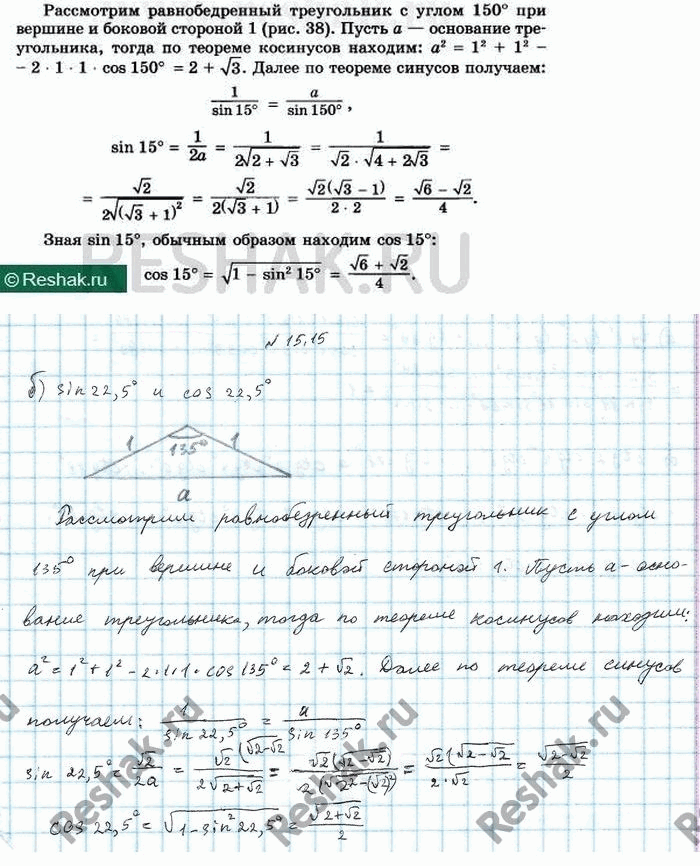 Рассмотрим равнобедренный треугольник с углом 150° при
вершине и боковой стороной 1 (рис. 38). Пусть a — основание тре-
угольника, тогда по теореме косинусов находим: a² = 1² + 1² −
− 2 · 1 · 1 · cos 150° = 2 + √3. Далее по теореме синусов получаем:
1/sin 15° = a/sin 150°,
sin 15° = 1/2a = 1/(2√(2 + √3)) = 1/(√2 · √(4 + 2√3)) =
= √2/(2√((√3 + 1)²)) = √2/(2(√3 + 1)) = √2(√3 − 1)/(2 · 2) = (√6 − √2)/4.
Зная sin 15°, обычным образом находим cos 15°:
© Reshak.ru
cos 15° = √(1 − sin² 15°) = (√6 + √2)/4.
RESHAK.RU
N 15.15
б) sin 22,5° и cos 22,5°
1 135° 1
a
Рассмотрим равнобезренный треугольник с углом
135° при вершине и боковой стороной 1. Пусть a - осно-
вание треугольника, тогда по теореме косинусов находим:
a² = 1² + 1² - 2·1·1·cos 135° = 2 + √2. Далее по теореме синусов
получаем: 1/sin 22,5° = a/sin 135°
sin 22,5° = √2/2a = √2(√(2-√2)/(2√(2+√2)) = √2(√(2-√2))/(2(√(2²-(√2)²)) = √2(√(2-√2)/(2·√2) = √(2-√2)/2
cos 22,5° = √(1-sin² 22,5°) = √(2+√2)/2
Reshak.ru
Reshak.ru
Reshak.ru